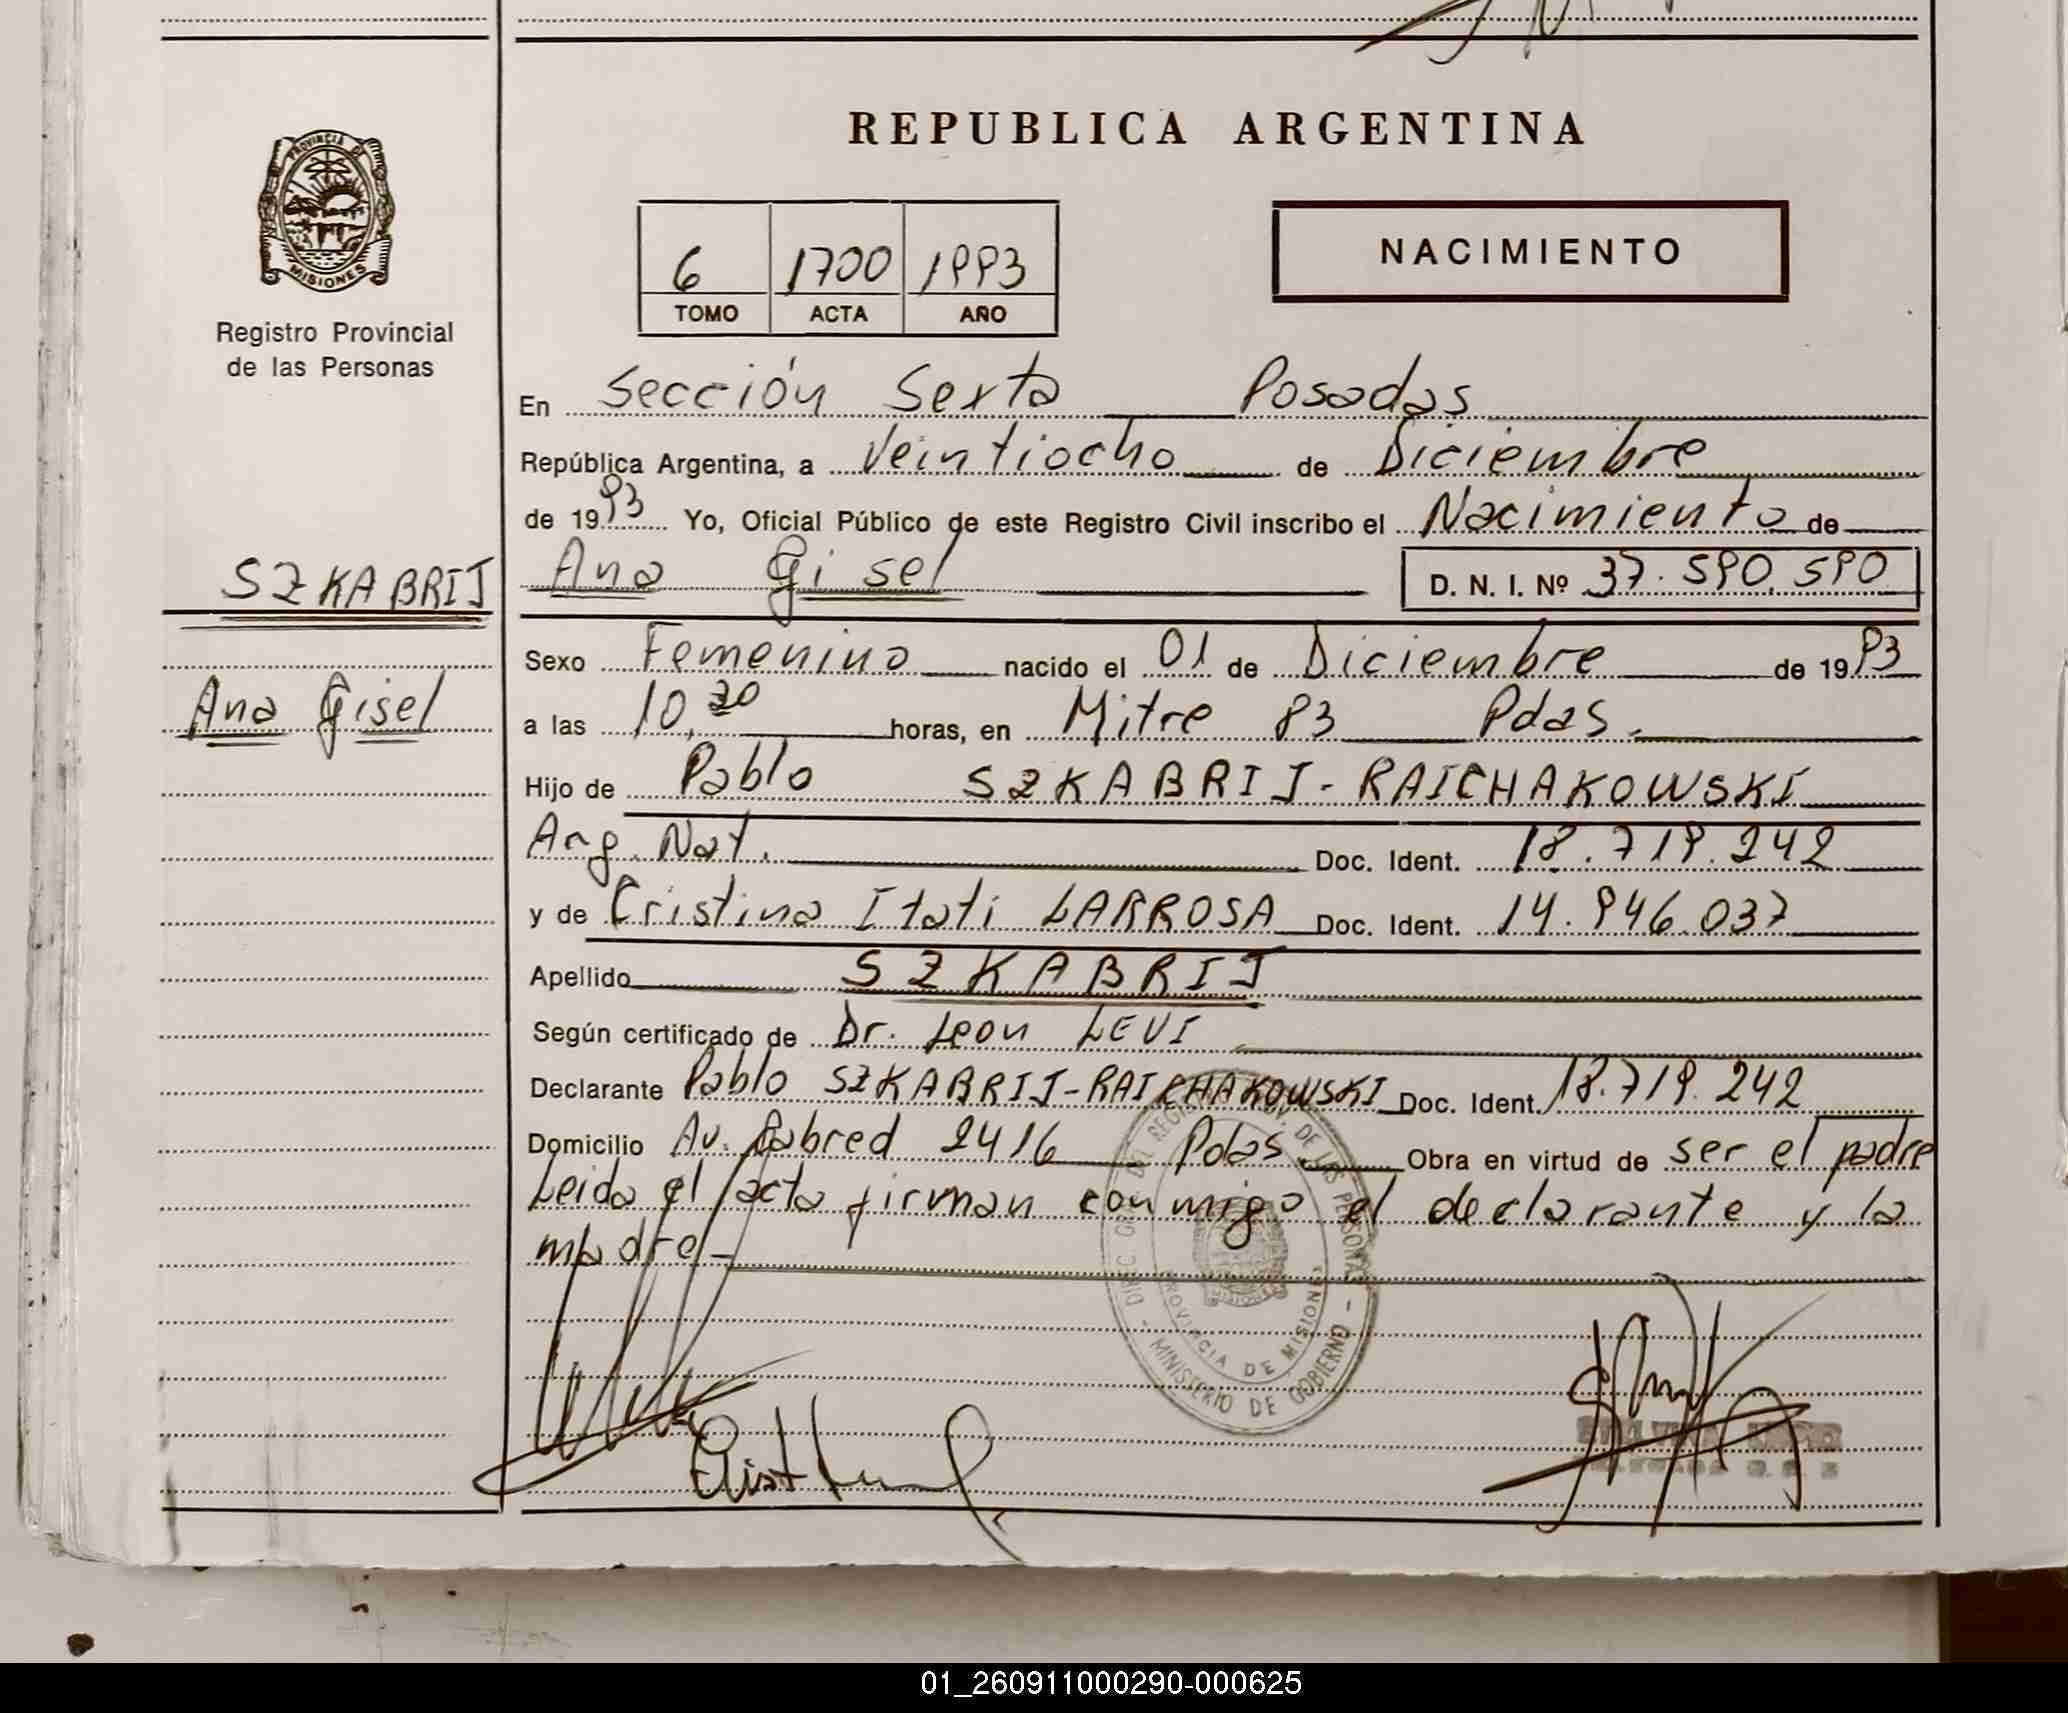 REPUBLICA ARGENTINA
PROVINCIA DE
MISIONES
Registro Provincial
de las Personas
6 1700 1993
TOMO ACTA AÑO
NACIMIENTO
En Sección Sexta Posadas
República Argentina, a Veintiocho de Diciembre
de 1993 Yo, Oficial Público de este Registro Civil inscribo el Nacimiento de
SZKABRIJ
Ana Gisel D. N. I. Nº 37.590.590
Sexo Femenino nacido el 01 de Diciembre de 1993
Ana Gisel
a las 10,20 horas, en Mitre 83 Pdas.
Hijo de Pablo SZKABRIJ-RAICHAKOWSKI
Arg. Nat. Doc. Ident. 18.719.242
y de Cristina Itati LARROSA Doc. Ident. 14.946.037
Apellido SZKABRIJ
Según certificado de Dr. Leon LEVI
Declarante Pablo SZKABRIJ-RAICHAKOWSKI Doc. Ident. 18.719.242
Domicilio Av. Cabred 2416 Pdas. Obra en virtud de ser el padre
Leida el acta firman conmigo el declarante y la
madre-
PROVINCIA DE MISIONES
- MINISTERIO DE GOBIERNO -
01_260911000290-000625